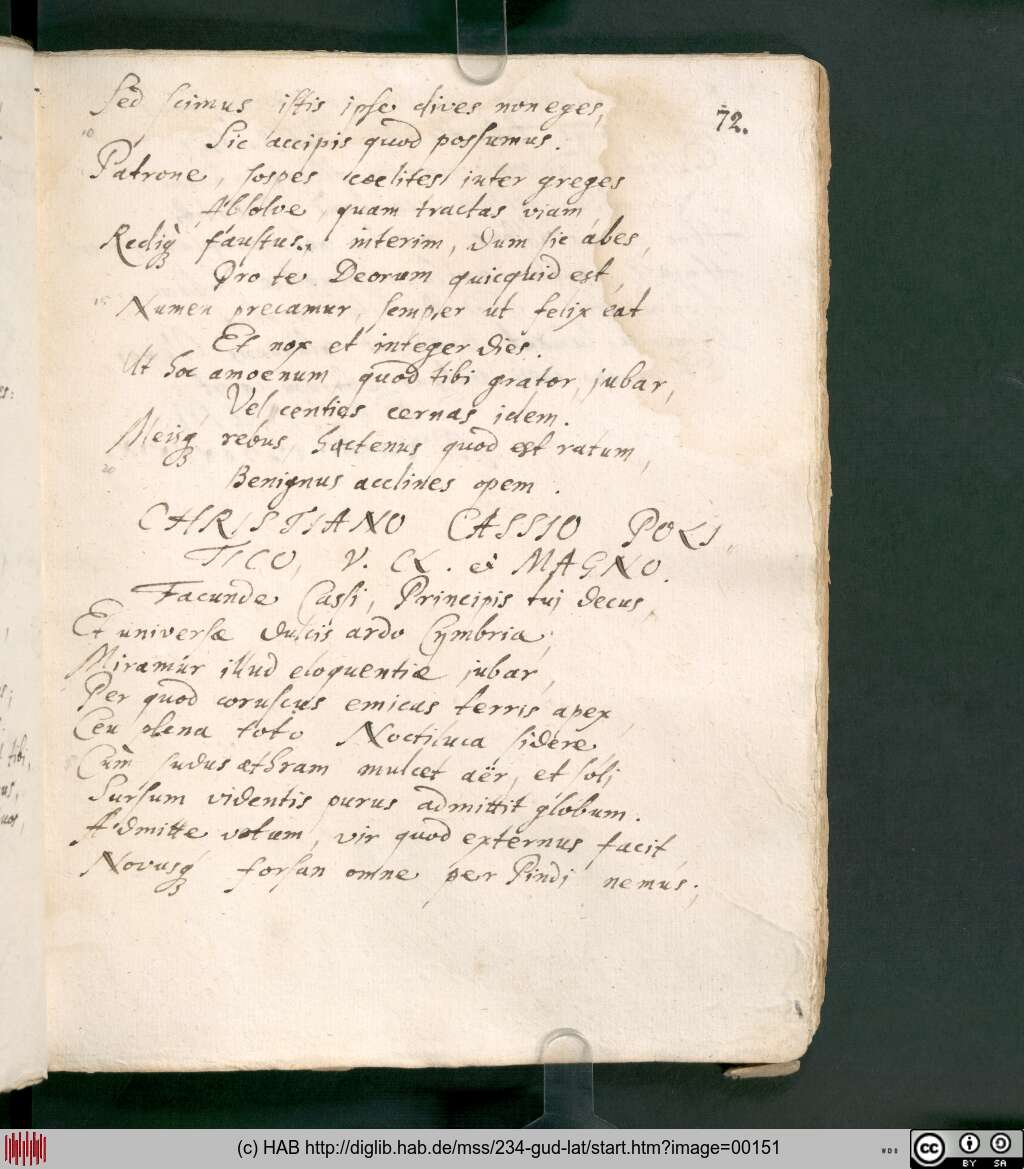 72.
Sed scimus istis ipse dives non eges,
10
Sic accipis quod possumus.
Patrone, sospes coelites inter greges
Absolve, quam tractas viam,
Rediq; faustus., interim, dum sic abes,
Pro te Deorum quicquid est,
15 Numen precamur, semper ut felix eat
Et nox et integer dies.
Ut hoc amoenum quod tibi grator, jubar,
Vel centies cernas idem.
Meisq; rebus, hactenus quod est ratum,
20
Benignus acclines opem.
CHRISTIANO CASSIO POLI
TICO, V. CL. et MAGNO.
Facunde Cassi, Principis tui decus,
Et universæ dulcis ardo Cymbria,
Miramúr illud eloquentiæ jubar,
Per quod coruscus emicas terris apex,
Ceu plena toto Noctiluca sidere
Cùm sudus æthram mulcet aër, et soli
Sursum videntis purus admittit globum.
Admitte votum, vir quod externus facit,
Novusq; forsan omne per Pindi nemus;
es:
tibi,
us,
(c) HAB http://diglib.hab.de/mss/234-gud-lat/start.htm?image=00151
cc BY SA